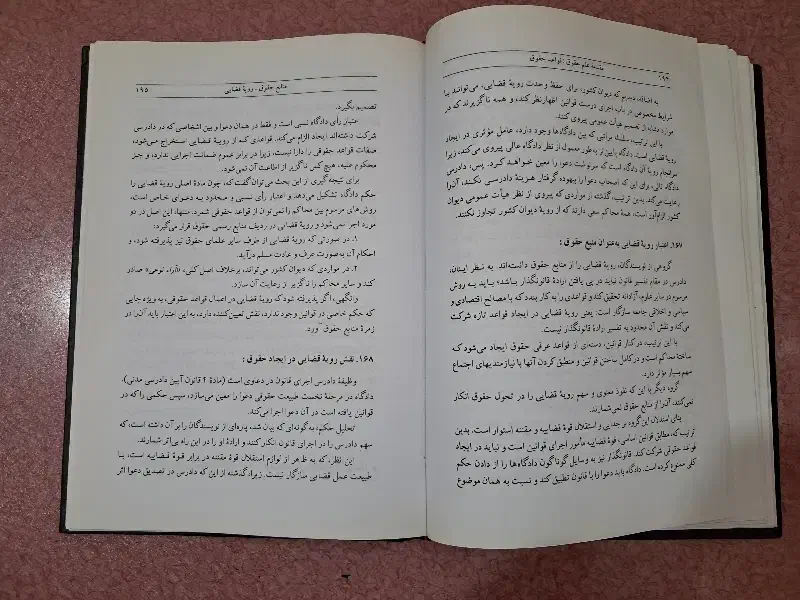 ۱۹۴
فلسفهٔ عام حقوق : قواعد حقوق
به اضافه، دیدیم که دیوان کشور، برای حفظ وحدت رویهٔ قضایی، می‌تواند با
شرایط مخصوص در باب اجرای درست قوانین اظهارنظر کند و همه ناگزیرند که در
موارد مشابه از تصمیم هیأت عمومی پیروی کنند.
با این ترتیب، سلسله مراتبی که بین دادگاه‌ها وجود دارد، عامل مؤثری در ایجاد
رویهٔ قضایی است. دادگاه پایین‌تر به‌طور معمول از نظر دادگاه عالی پیروی می‌کند، زیرا
سرانجام رویهٔ آن دادگاه است که سرنوشت دعوا را معین خواهد کرد. پس، دادرس
دادگاه تالی، برای این که اصحاب دعوا را بیهوده گرفتار هزینهٔ دادرسی نکند، آن‌را
رعایت می‌کند. بدین ترتیب، گذشته از مواردی که پیروی از نظر هیأت عمومی دیوان
کشور الزام‌آور است، همهٔ محاکم سعی دارند که از رویهٔ دیوان کشور تجاوز نکنند.
۱۶۷. اعتبار رویهٔ قضایی به‌عنوان منبع حقوق :
گروهی از نویسندگان، رویهٔ قضایی را از منابع حقوق دانسته‌اند. به نظر اینان،
دادرس در مقام تفسیر قانون نباید در پی یافتن ارادهٔ قانونگذار باشد؛ باید به روش
مرسوم در سایر علوم، آزادانه تحقیق کند و قواعدی را به کار بندد که با مصالح اقتصادی و
سیاسی و اخلاقی جامعه سازگار است. یعنی رویهٔ قضایی در ایجاد قواعد تازه شرکت
می‌کند و نقش آن محدود به تفسیر ارادهٔ قانونگذار نیست.
با این ترتیب، در کنار قوانین، دسته‌ای از قواعد عرفی حقوق ایجاد می‌شود که
ساختهٔ محاکم است و در کامل ساختن قوانین و منطبق کردن آنها با نیازمندیهای اجتماع
سهم بسیار مؤثر دارد.
گروه دیگر با این که نفوذ معنوی و سهم رویهٔ قضایی را در تحول حقوق انکار
نمی‌کنند، آن‌را از منابع حقوق نمی‌شمارند.
بنای استدلال این گروه بر جدایی و استقلال قوهٔ قضاییه و مقننه استوار است. بدین
ترتیب که، مطابق قوانین اساسی، قوهٔ قضاییه مأمور اجرای قوانین است و نباید در ایجاد
قواعد حقوقی شرکت کند. قانونگذار نیز به وسایل گوناگون دادگاه‌ها را از دادن حکم
کلی ممنوع کرده است. دادگاه باید دعوا را با قانون تطبیق کند و نسبت به همان موضوع
منابع حقوق ـ رویهٔ قضایی
۱۹۵
تصمیم بگیرد.
اعتبار رأی دادگاه نسبی است و فقط در همان دعوا و بین اشخاصی که در دادرسی
شرکت داشته‌اند ایجاد الزام می‌کند. قواعدی کـه از رویهٔ قـضایی استخراج می‌شود،
صفات قواعد حقوقی را دارا نیست، زیرا در برابر عموم ضمانت اجرایی ندارد، و جز
محکوم علیه، هیچ کس ناگزیر از اطاعت آن نمی‌شود.
برای نتیجه‌گیری از این بحث می‌توان گفت که، چون مادهٔ اصلی رویهٔ قضایی را
حکم دادگاه تشکیل می‌دهد و اعتبار رأی نسبی و محدود به دعوای خاص است،
روش‌های مرسوم بین محاکم را نمی‌توان از قواعد حقوقی شمرد. منتها، این اصل در دو
مورد اجرا نمی‌شود و رویهٔ قضایی در ردیف منابع رسمی حقوق قرار می‌گیرد:
۱. در صورتی که رویهٔ قضایی از طرف سایر علمای حقوق نیز پذیرفته شود، و
احکام آن به‌صورت عرف و عادت مسلم درآید.
۲. در مواردی که دیوان کشور می‌تواند، برخلاف اصل کلی، «آراء نوعی» صادر
کند و سایر محاکم را ناگزیر از رعایت آن سازد.
وانگهی، اگر پذیرفته شود که رویهٔ قضایی در اعمال قواعد حقوقی، به ویژه جایی
که حکم خاصی در قوانین وجود ندارد، نقش تعیین‌کننده دارد، به این اعتبار باید آن‌را در
زمرهٔ منابع حقوق آورد.
۱۶۸. نقش رویهٔ قضایی در ایجاد حقوق :
وظیفهٔ دادرس اجرای قانون در دعاوی است (مادهٔ ۲ قانون آیین دادرسی مدنی).
دادگاه در مرحلهٔ نخست طبیعت حقوقی دعوا را معین می‌سازد، سپس حکمی را که در
قوانین یافته است در آن دعوا اجرا می‌کند.
تحلیل حکم، به‌گونه‌ای که بیان شد، پاره‌ای از نویسندگان را بر آن داشته است، که
سهم دادرس را در اجرای قانون انکار کنند و ارادهٔ او را در این راه بی‌اثر شمارند.
این نظر، که به ظاهر از لوازم استقلال قوهٔ مقننه در برابر قوهٔ قضاییه است، با
طبیعت عمل قضایی سازگار نیست. زیرا، گذشته از این که دادرس در تصدیق دعوا اثر